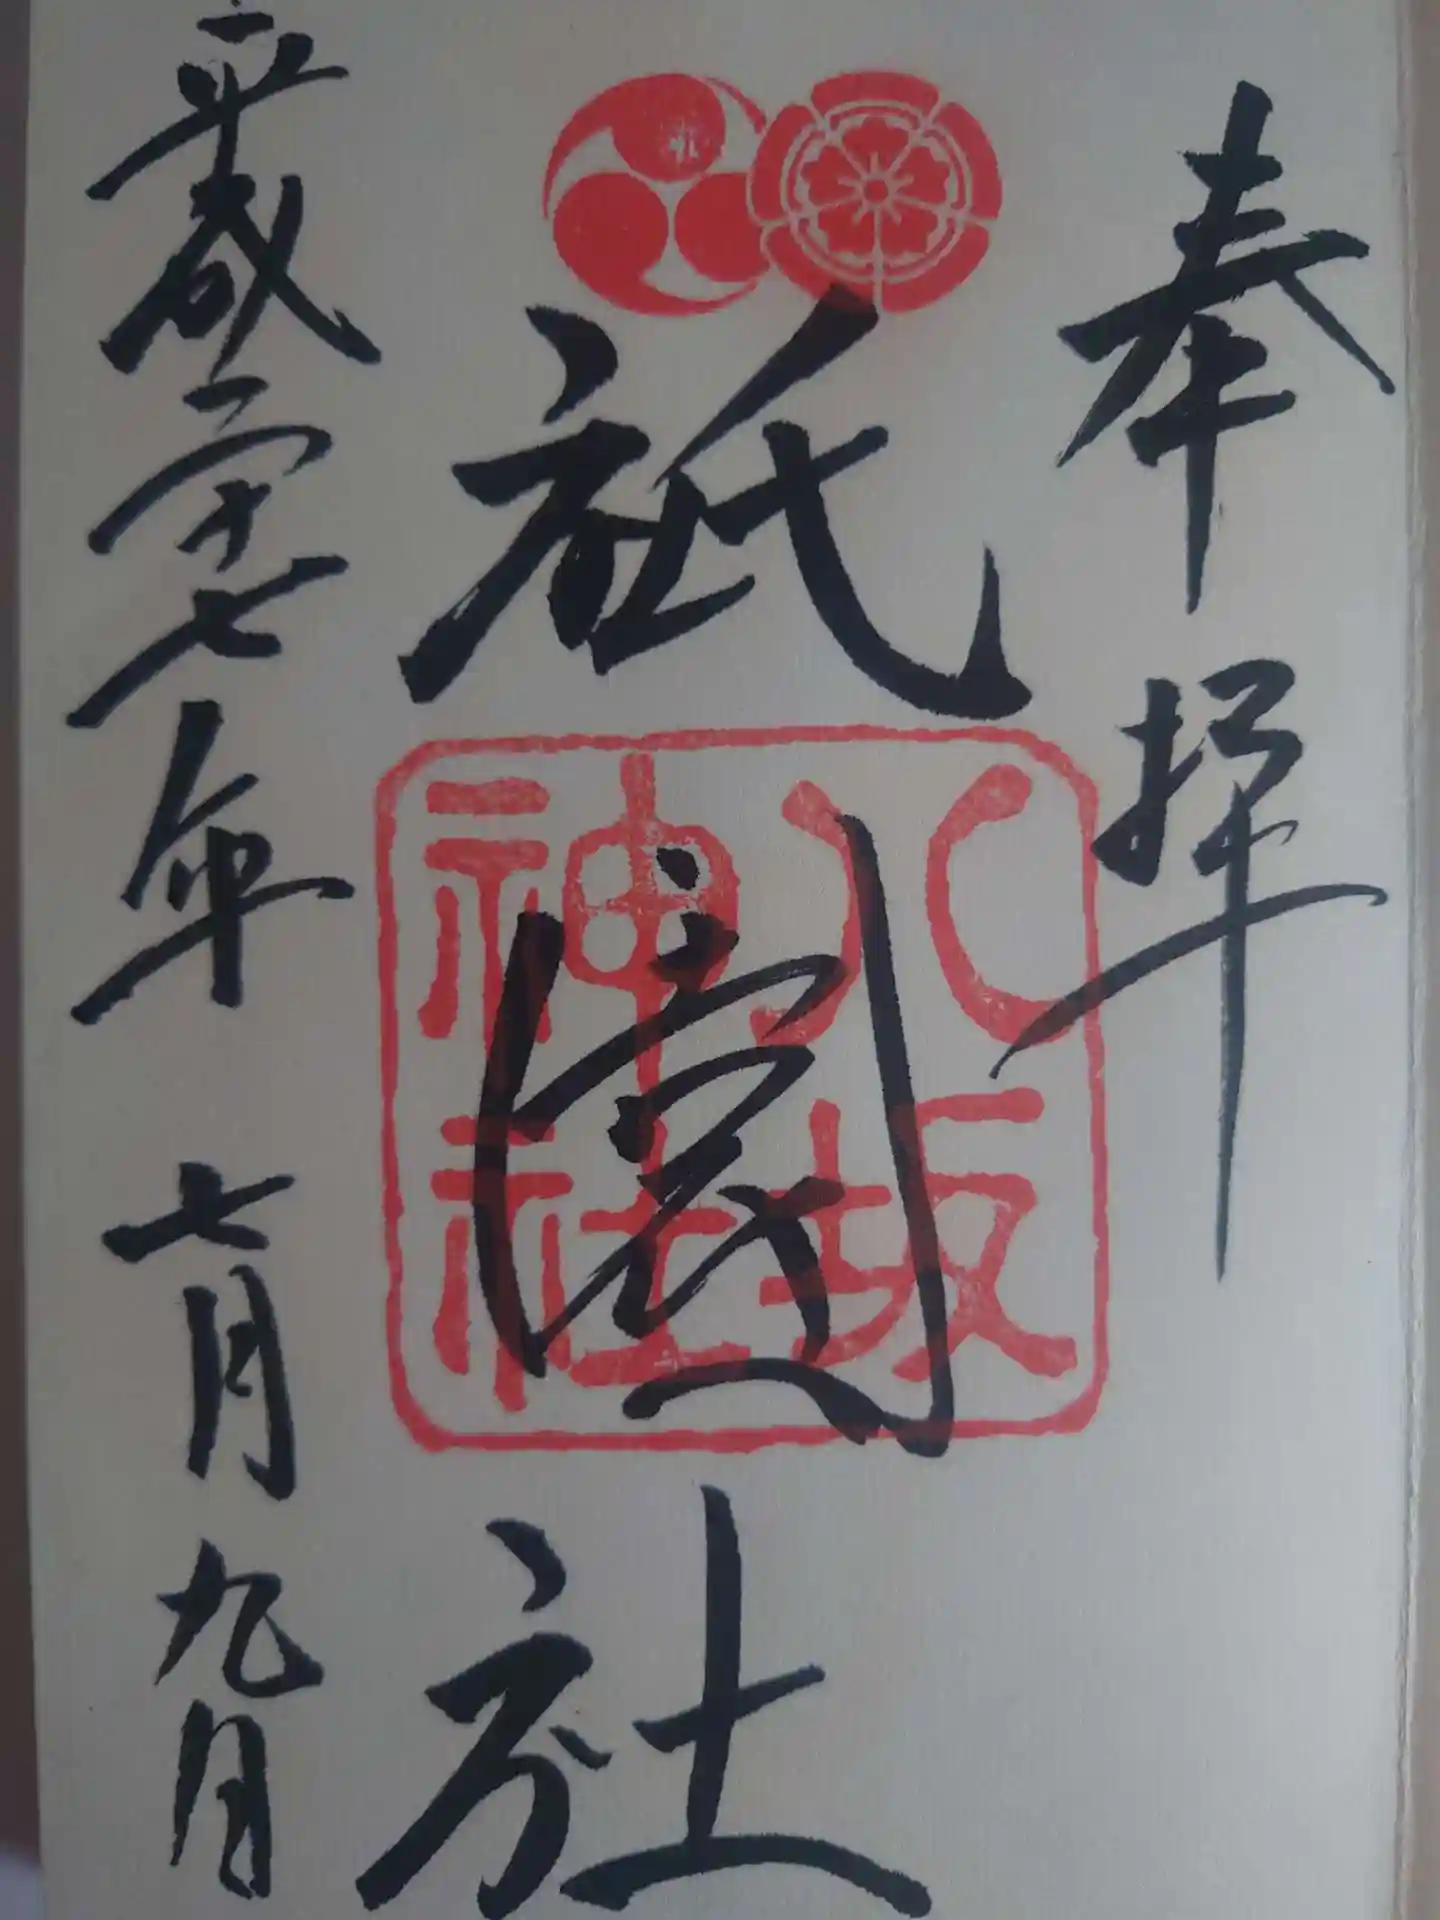 奉拝
祇園社
八坂
神社
平成二十七年 七月九日